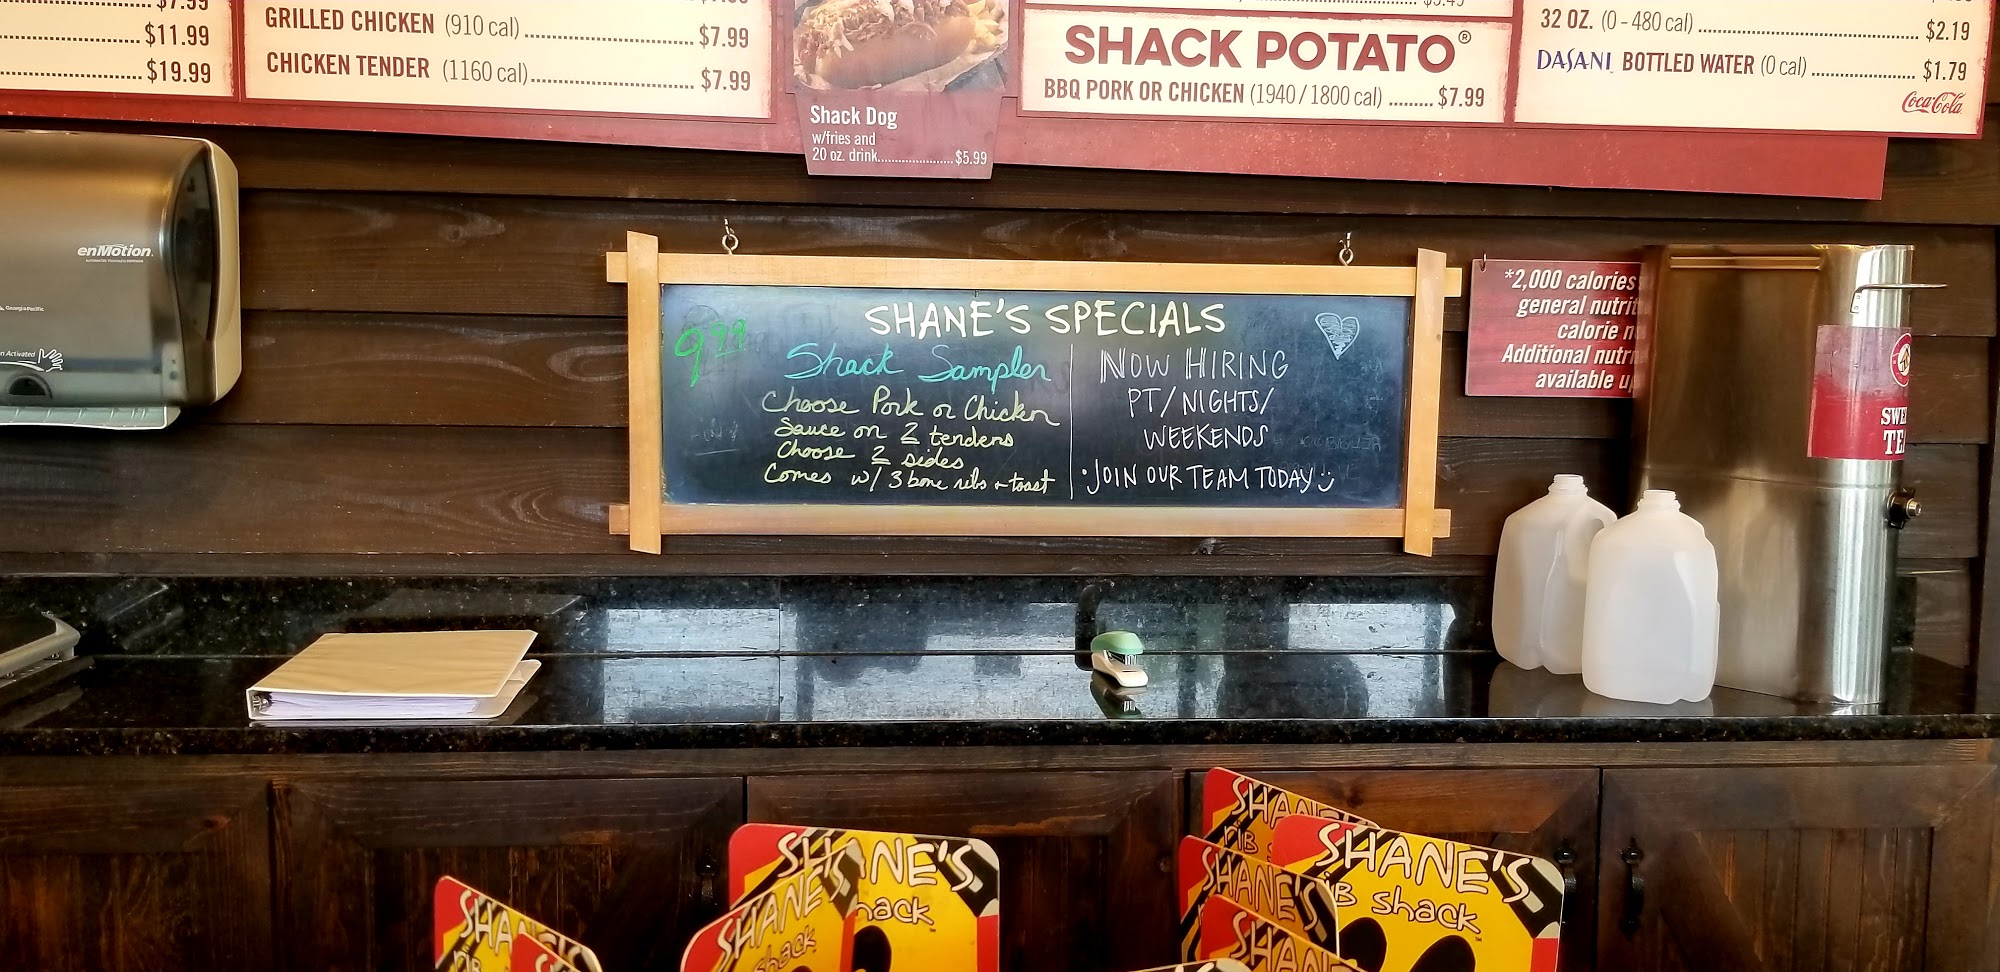 $11.99
$19.99
GRILLED CHICKEN (910 cal) $7.99
CHICKEN TENDER (1160 cal) $7.99
Shack Dog
w/fries and
20 oz. drink $5.99
SHACK POTATO®
BBQ PORK OR CHICKEN (1940 / 1800 cal) $7.99
32 OZ. (0 - 480 cal) $2.19
DASANI BOTTLED WATER (0 cal) $1.79
Coca-Cola
enMotion
Georgia-Pacific
Activated
SHANE'S SPECIALS
9.99
Shack Sampler
Choose Pork or Chicken
Sauce on 2 tenders
Choose 2 sides
Comes w/ 3 bone ribs + toast
NOW HIRING
PT/NIGHTS/
WEEKENDS
·JOIN OUR TEAM TODAY
*2,000 calories
general
calorie
Additional
available
SHANE'S
SHANE'S
SHANE'S
shack
SHANE'S
RIB
SHANE'S
RIB shack
SHANE'S